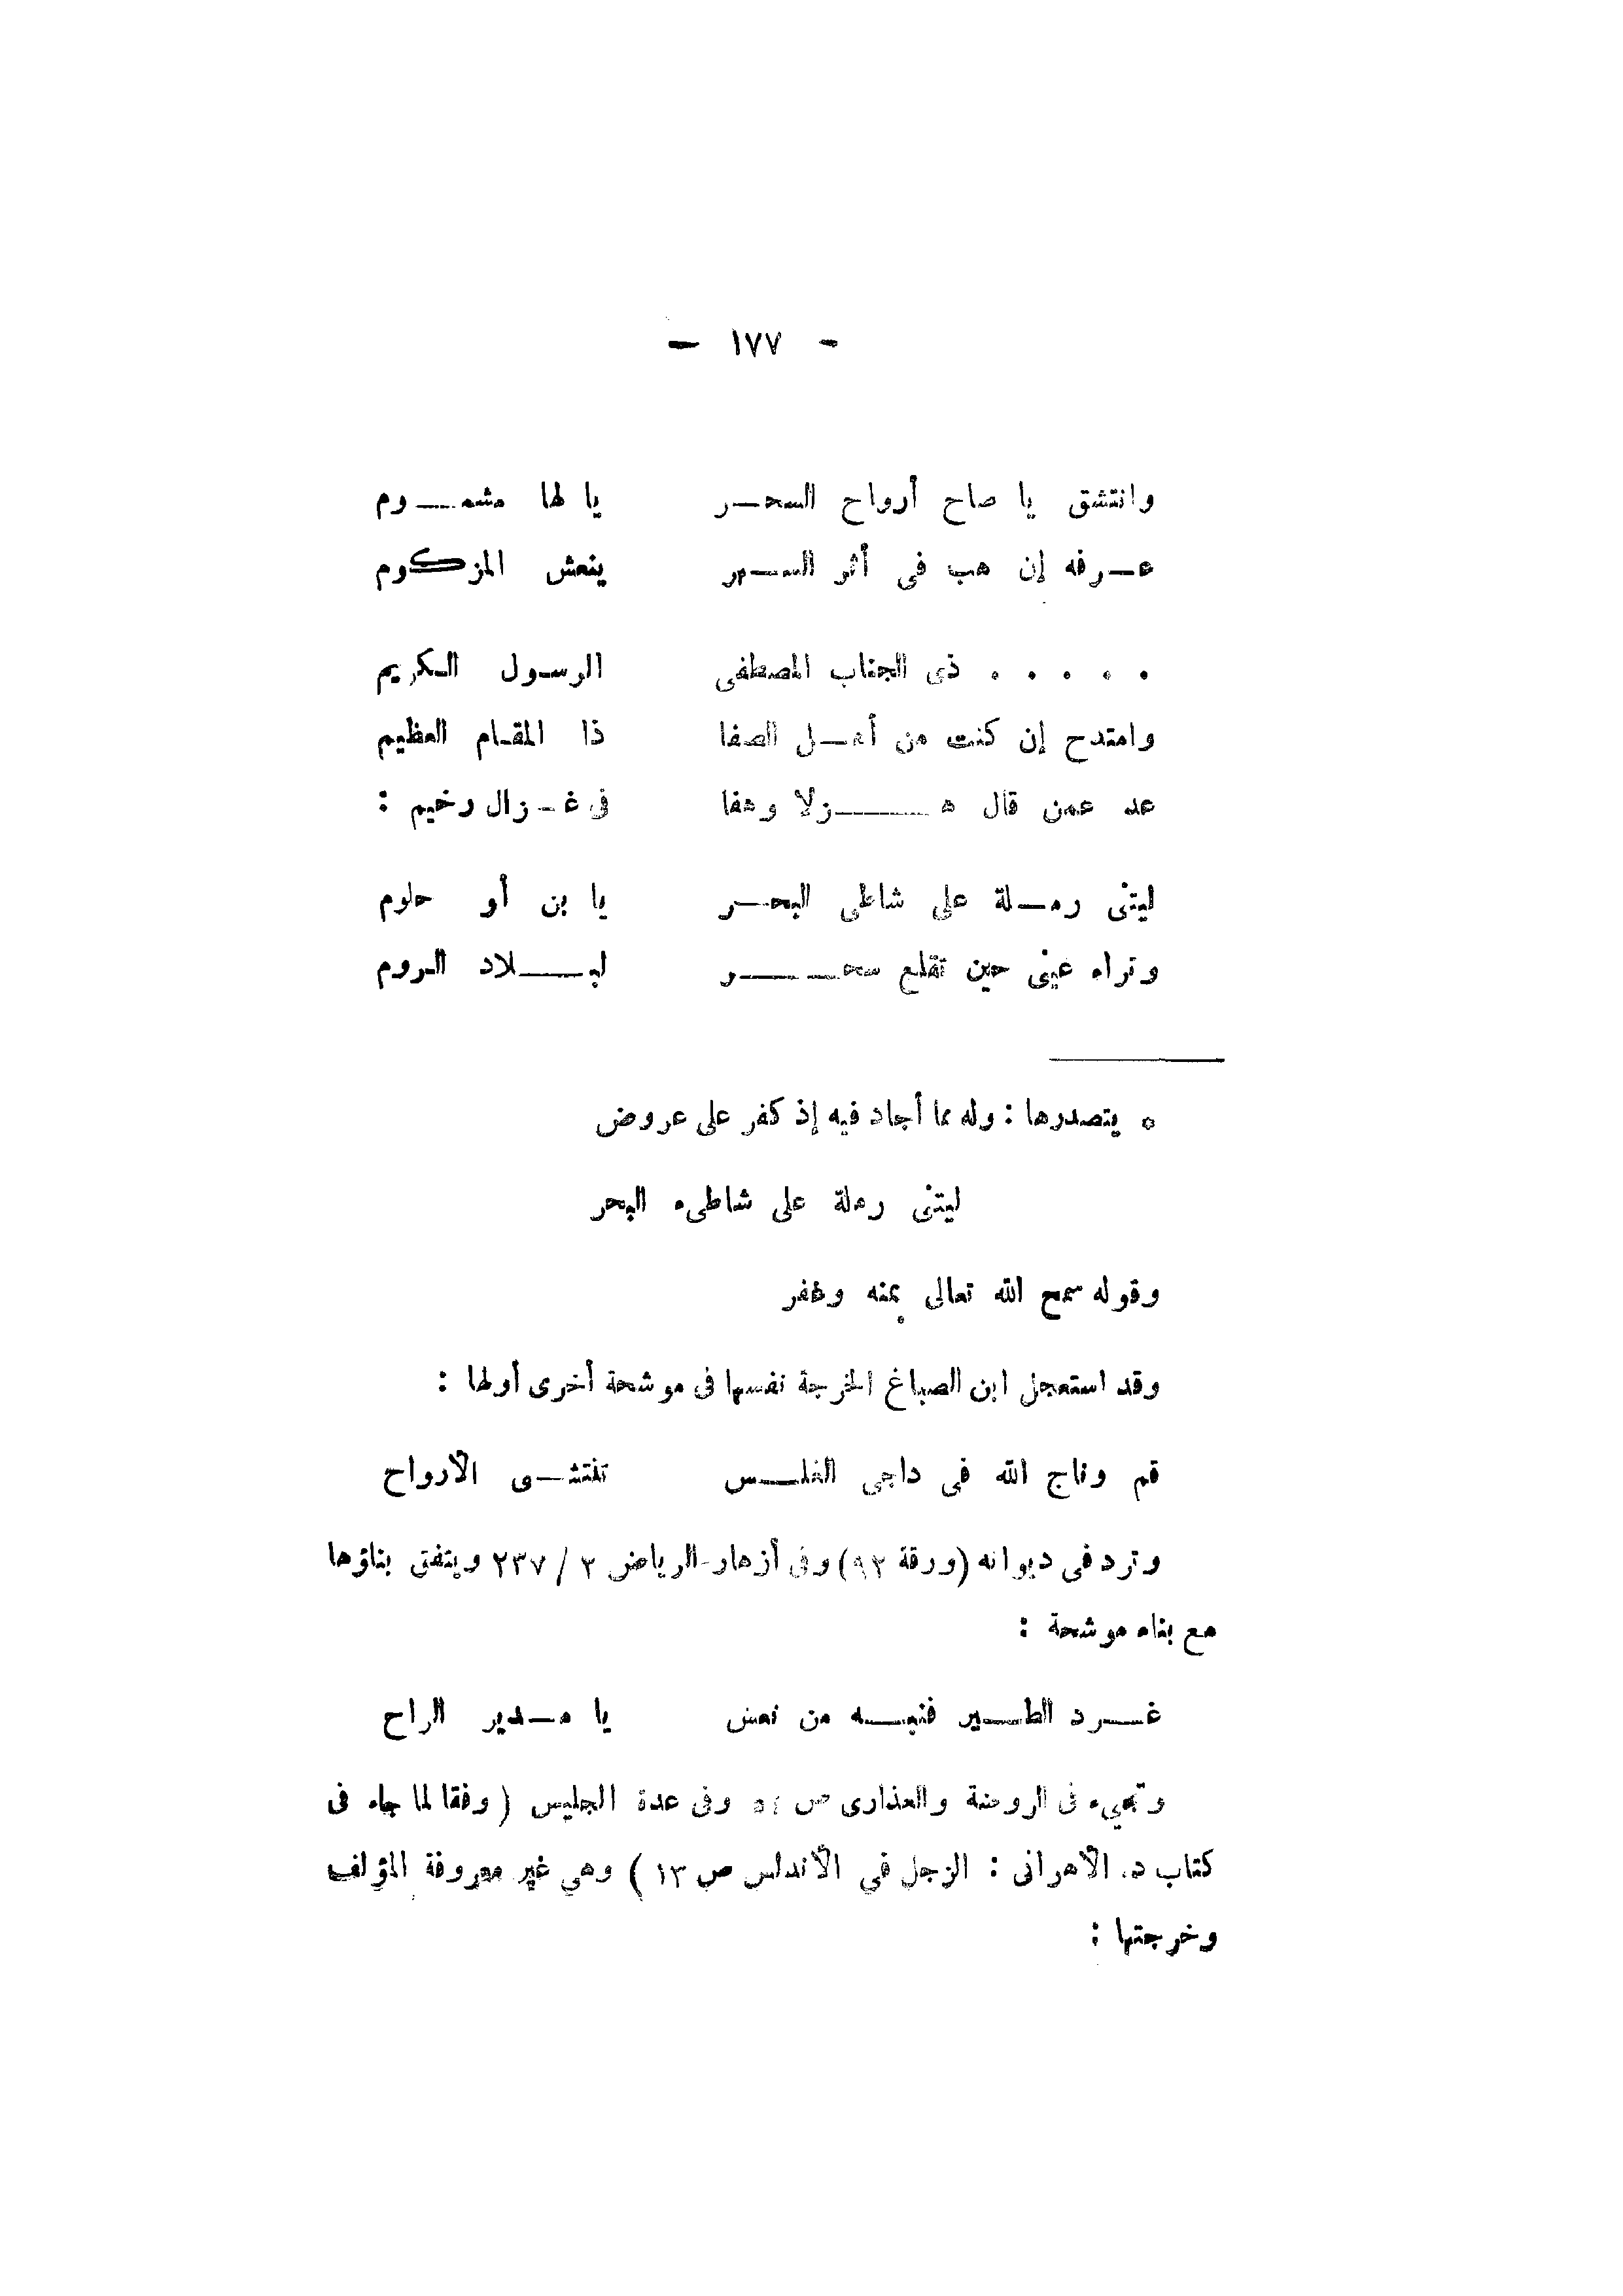 - ١٧٧ -
وانتشق يا صاح أرواح السحــر يا لها مشمــوم
عــرفه إن هب فى أثر السمــر ينعش المزكوم
. . . . . ذى الجناب المصطفى الرســول الكريم
وامتدح إن كنت من أهــل الصفا ذا المقــام العظيم
عد عمن قال هــزلا وهفا فى غــزال رخيم :
ليتنى رمــلة على شاطى البحــر يا بن أو حلوم
وتراه عينى حين تقلع سحــر لبــلاد الروم
* يتصدرها : وله مما أجاد فيه إذ كفر على عروض
ليتنى رملة على شاطىء البحر
وقوله سمح الله تعالى بمنه وغفر
وقد استعمل ابن الصباغ الخرجة نفسها فى موشحة أخرى أولها :
قم وناج الله فى داجى الغلــس تنتشــى الأرواح
وترد فى ديوانه (ورقة ٩٢) وفى أزهار الرياض ٢ / ٢٣٧ ويتفق بناؤها
مع بناء موشحة :
غــرد الطــير فنبــه من نعس يا مــدير الراح
وتجىء فى الروضة والعذارى ص ٥٤ وفى عدة الجليس ( وفقا لما جاء فى
كتاب د. الأهرانى : الزجل فى الأندلس ص ١٣ ) وهى غير معروفة المؤلف
وخرجتها :